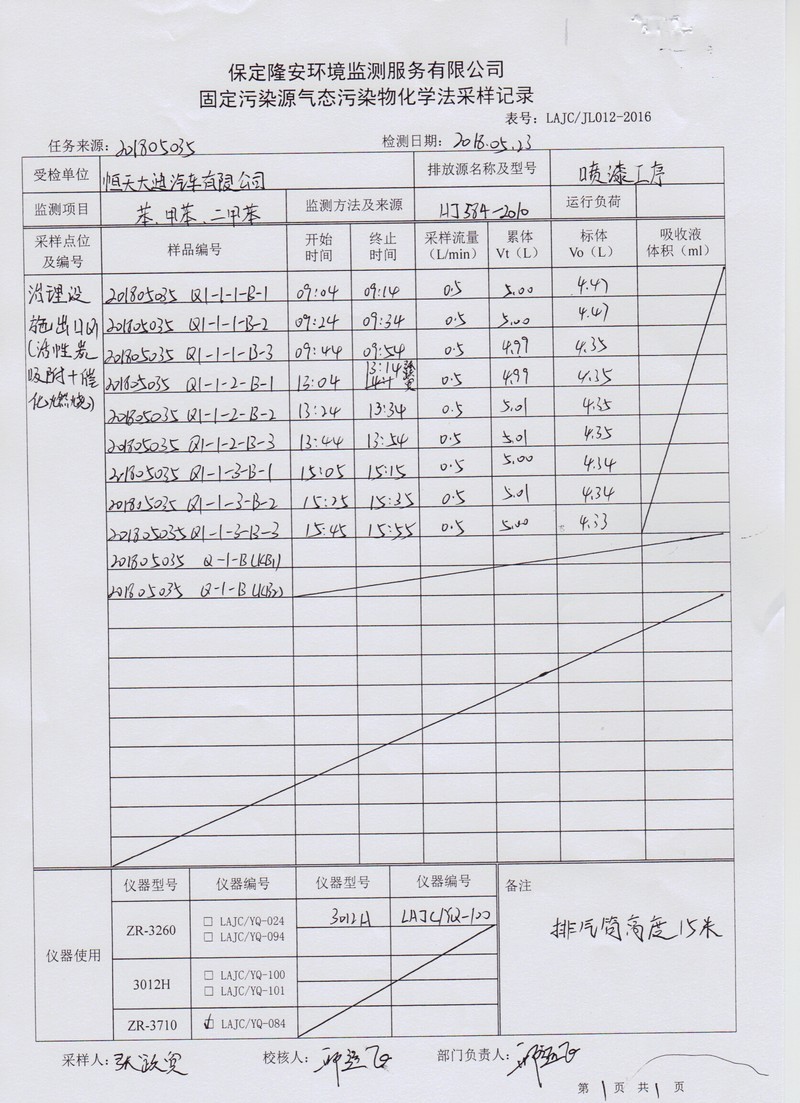 保定隆安环境监测服务有限公司
固定污染源气态污染物化学法采样记录
表号: LAJC/JL012-2016
任务来源: 201805035 检测日期: 2018.05.23
受检单位 恒天大迪汽车有限公司 排放源名称及型号 喷漆工序
监测项目 苯、甲苯、二甲苯 监测方法及来源 HJ584-2010 运行负荷
采样点位及编号 样品编号 开始时间 终止时间 采样流量(L/min) 累体Vt(L) 标体Vo(L) 吸收液体积(ml)
治理设施出口Q1(活性炭吸附+催化燃烧)
201805035 Q1-1-1-B-1 09:04 09:14 0.5 5.00 4.47
201805035 Q1-1-1-B-2 09:24 09:34 0.5 5.00 4.47
201805035 Q1-1-1-B-3 09:44 09:54 0.5 4.99 4.35
201805035 Q1-1-2-B-1 13:04 13:14 0.5 4.99 4.35
201805035 Q1-1-2-B-2 13:24 13:34 0.5 5.01 4.35
201805035 Q1-1-2-B-3 13:44 13:54 0.5 5.01 4.35
201805035 Q1-1-3-B-1 15:05 15:15 0.5 5.00 4.34
201805035 Q1-1-3-B-2 15:25 15:35 0.5 5.01 4.34
201805035 Q1-1-3-B-3 15:45 15:55 0.5 5.00 4.33
201805035 Q-1-B(KB1)
201805035 Q-1-B(KB2)
仪器使用 仪器型号 仪器编号 仪器型号 仪器编号 备注
ZR-3260 □ LAJC/YQ-024 3012H LAJC/YQ-100
□ LAJC/YQ-094
排气筒高度15米
3012H □ LAJC/YQ-100
□ LAJC/YQ-101
ZR-3710 ☑ LAJC/YQ-084
采样人: 校核人: 部门负责人:
第 1 页 共 1 页